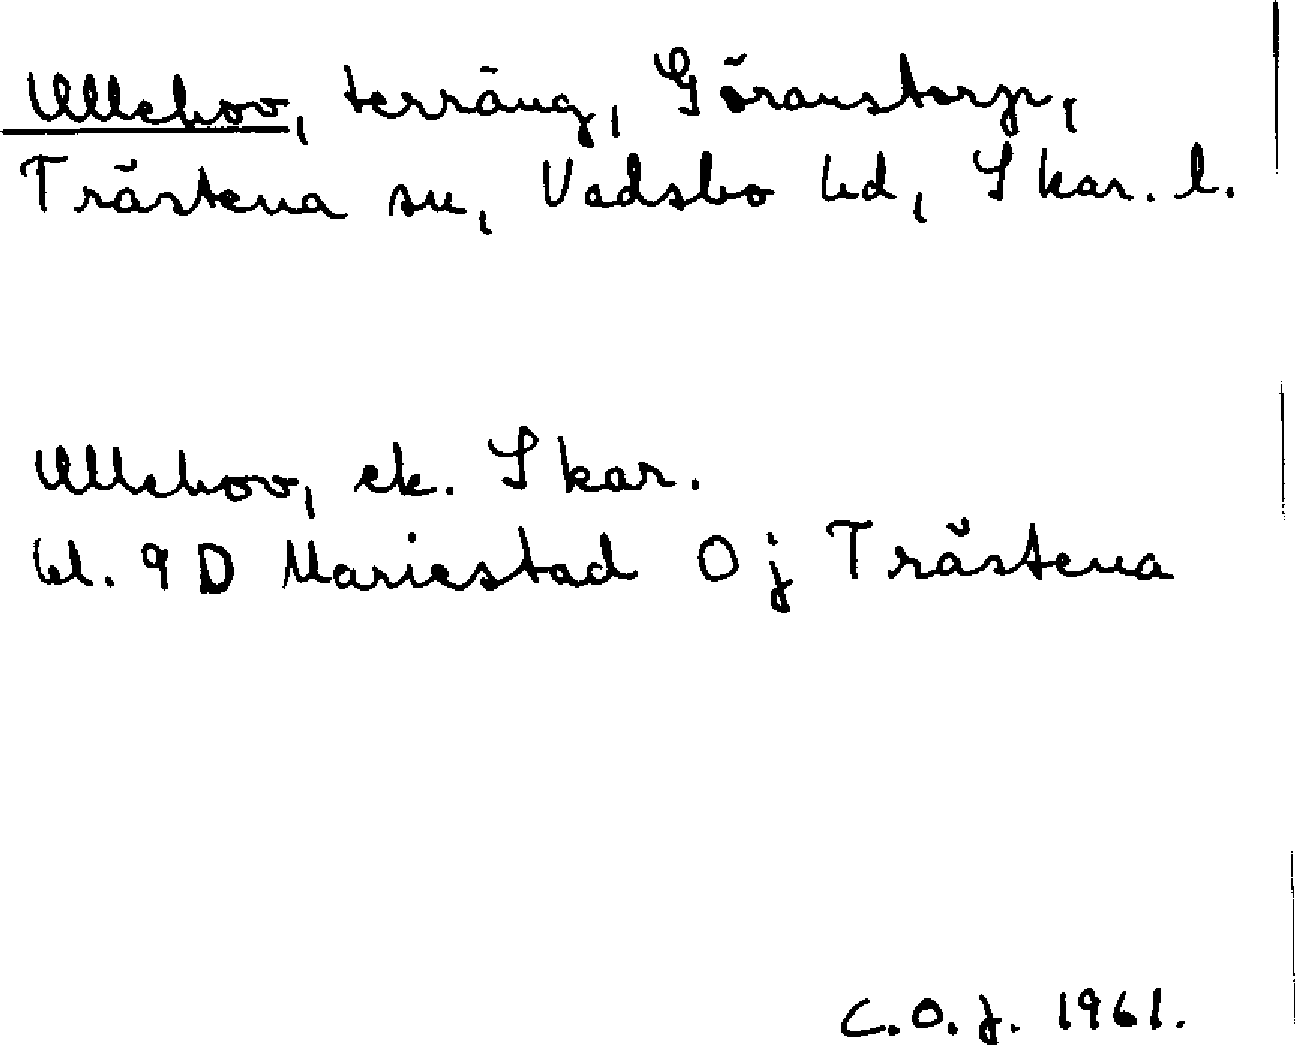 Ullehov, terräng, Göranstorp,
Trästena sn, Vadsbo hd, Skar. l.
Ullehov, ek. Skar.
bl. 9 D Mariestad 0 j Trästena
C.O.J. 1961.